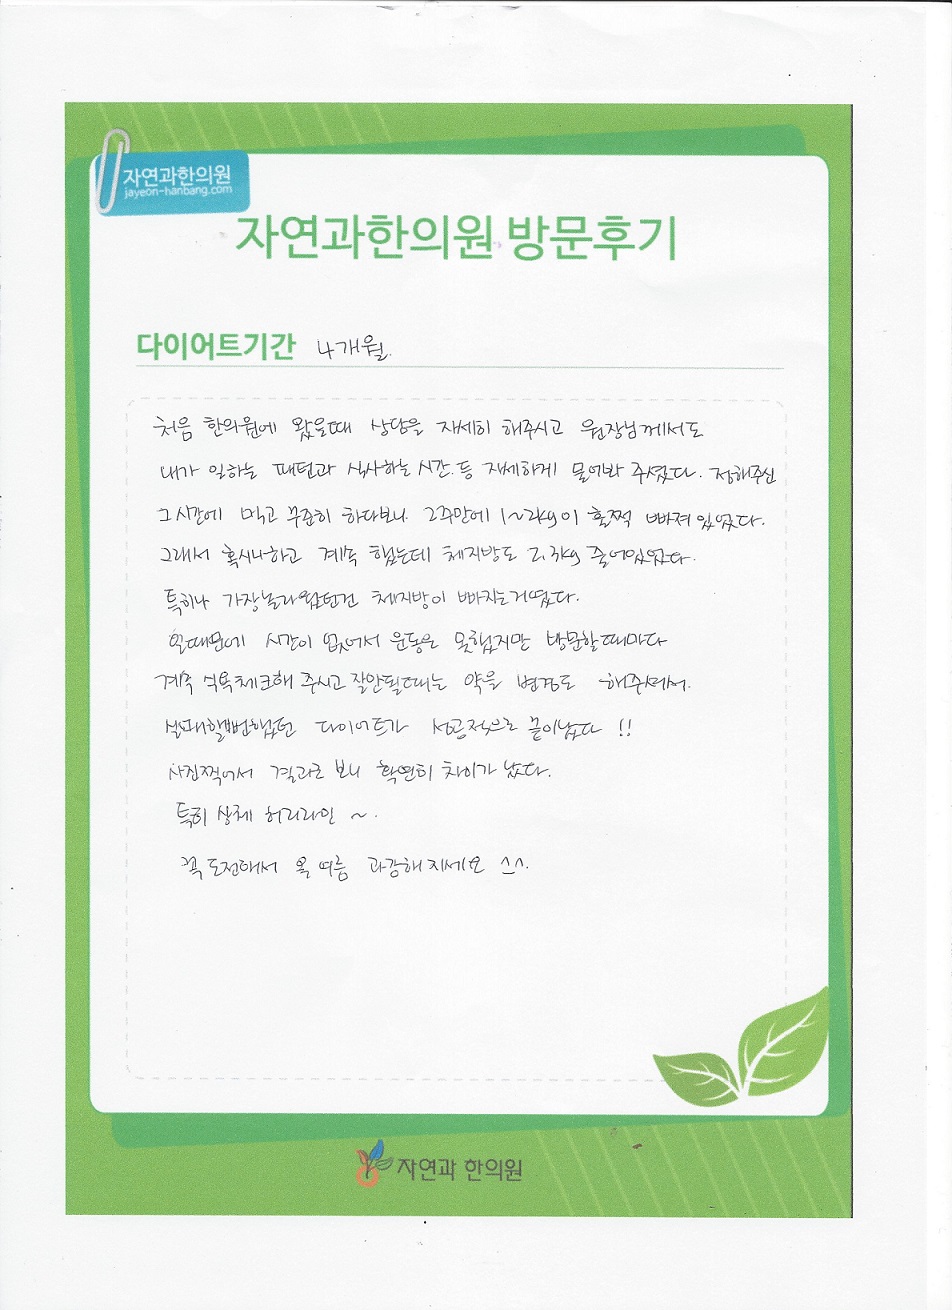 자연과한의원
jayeon-hanbang.com
자연과한의원 방문후기
다이어트기간 4개월.
처음 한의원에 왔을때 상담을 자세히 해주시고 원장님께서도
내가 일하는 패턴과 식사하는 시간.등 자세하게 물어봐 주셨다. 정해주신
그시간에 먹고 꾸준히 하다보니 2주만에 1~2kg이 훌쩍 빠져있었다.
그래서 혹시나하고 계속 했는데 체지방도 2.3kg 줄어있었다.
특히나 가장놀라웠던건 체지방이 빠지는거였다.
일때문에 시간이 없어서 운동은 못했지만 방문할때마다
계속 식욕체크해 주시고 잘안될때는 약을 변경도 해주셔서.
실패할뻔했던 다이어트가 성공적으로 끝이났다 !!
사진찍어서 결과로 보니 확연히 차이가 났다.
특히 상체 허리라인 ~.
꼭 도전해서 올 여름 과감해지세요 ^^.
자연과 한의원